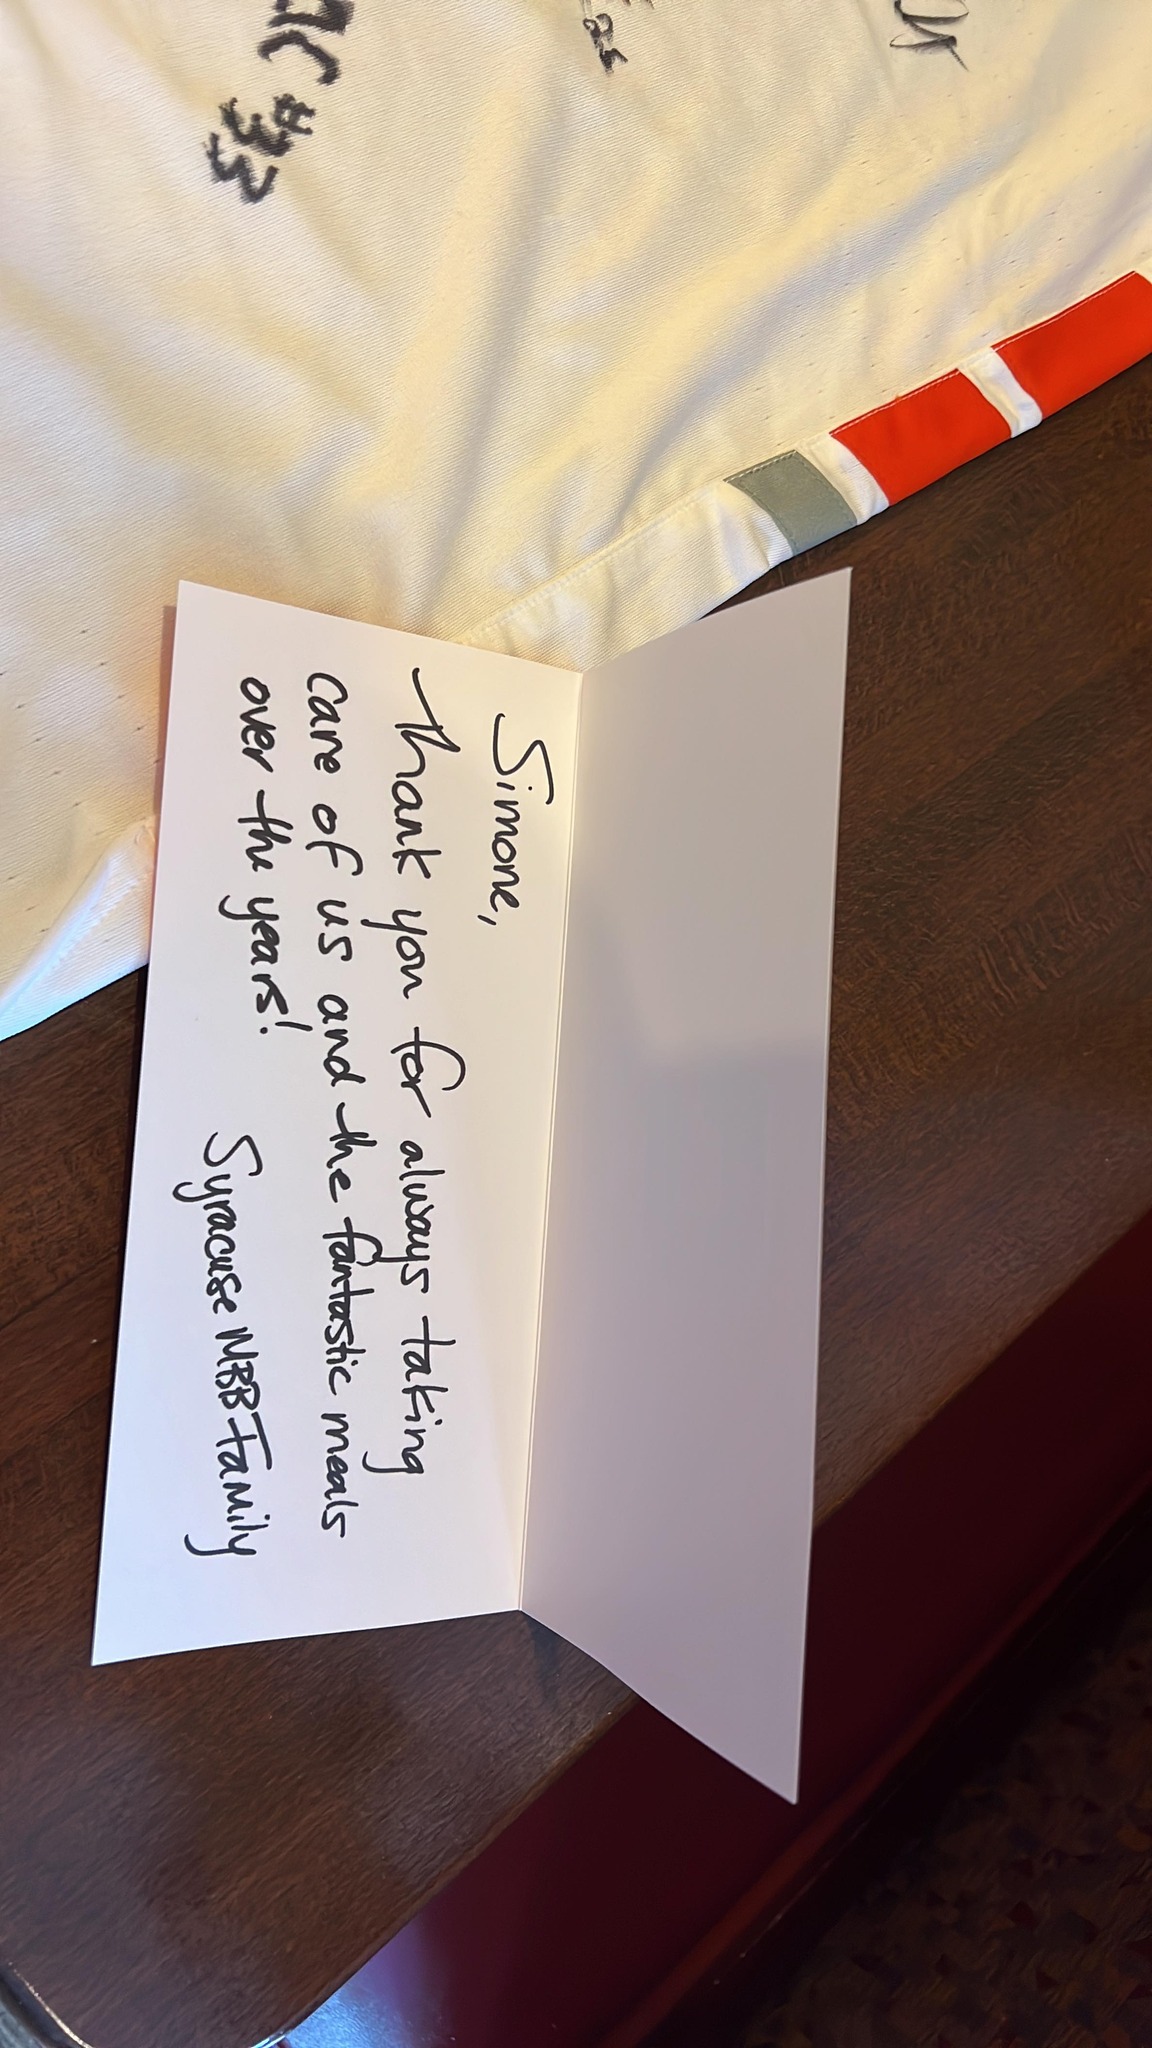 Simone,
Thank you for always taking
care of us and the fantastic meals
over the years!
Syracuse MBB Family
#33